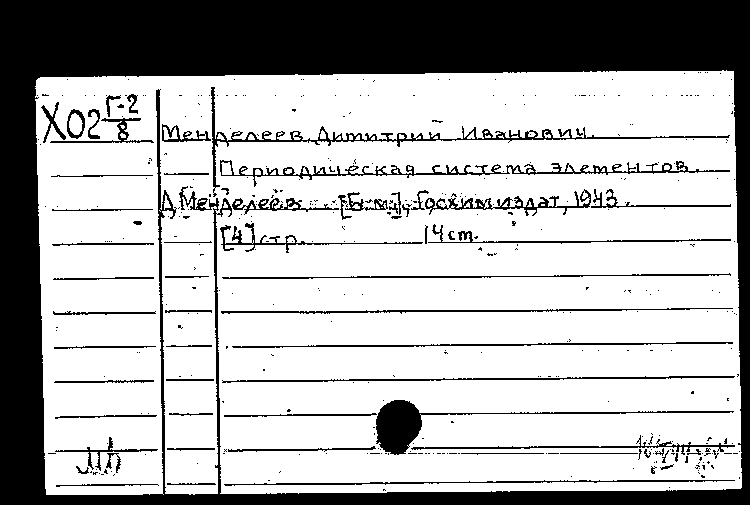 Х02 Г-2/8
Менделеев, Димитрий Иванович.
Периодическая система элементов.
Д. Менделеев. [Б.м.], Госхимиздат, 1943.
[4] стр. 14 cm.